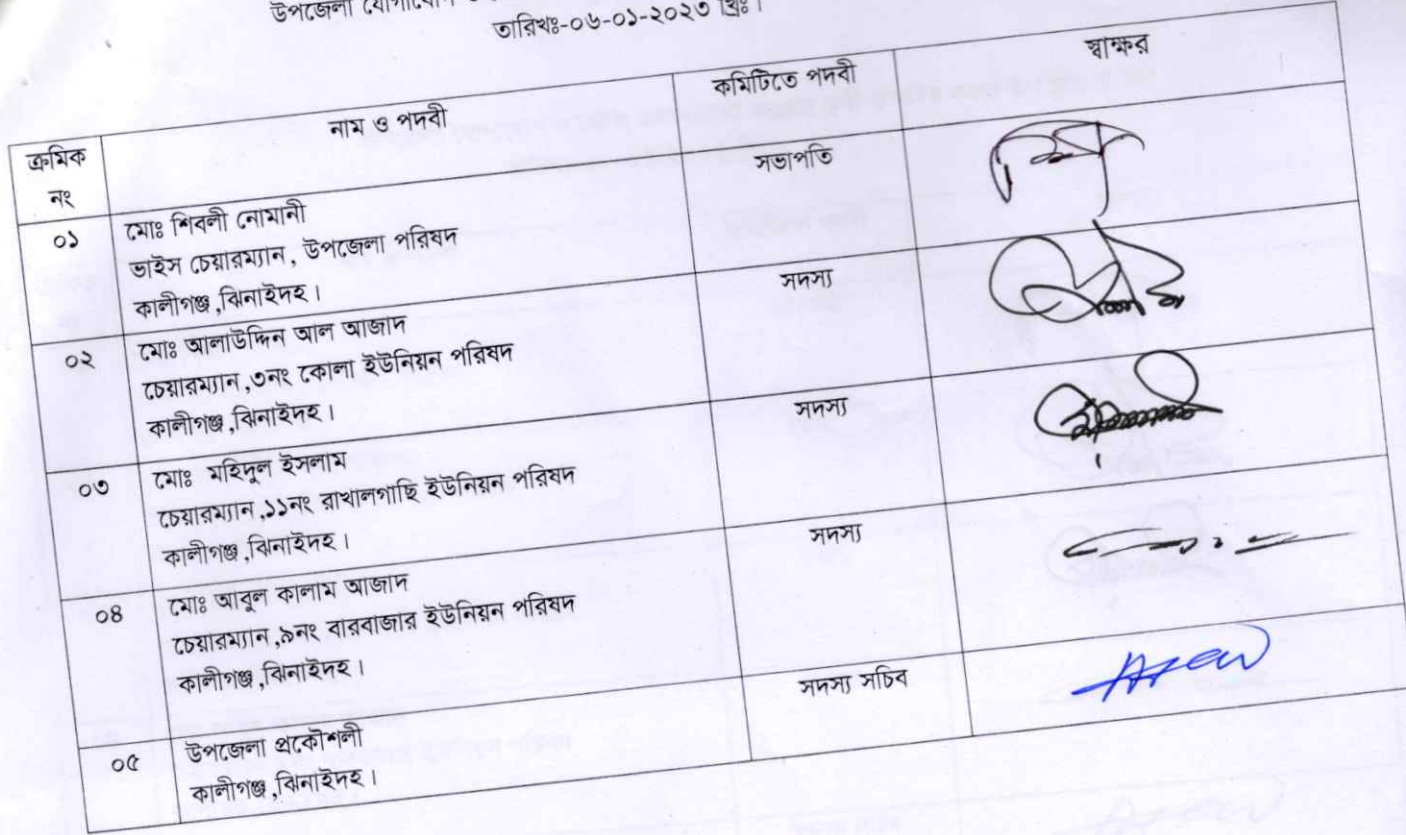 উপজেলা যোগাযোগ
তারিখঃ-০৬-০১-২০২৩ খ্রিঃ।
ক্রমিক নং
নাম ও পদবী
কমিটিতে পদবী
স্বাক্ষর
০১
মোঃ শিবলী নোমানী
ভাইস চেয়ারম্যান, উপজেলা পরিষদ
কালীগঞ্জ,ঝিনাইদহ।
সভাপতি
০২
মোঃ আলাউদ্দিন আল আজাদ
চেয়ারম্যান,৩নং কোলা ইউনিয়ন পরিষদ
কালীগঞ্জ,ঝিনাইদহ।
সদস্য
০৩
মোঃ মহিদুল ইসলাম
চেয়ারম্যান,১১নং রাখালগাছি ইউনিয়ন পরিষদ
কালীগঞ্জ,ঝিনাইদহ।
সদস্য
০৪
মোঃ আবুল কালাম আজাদ
চেয়ারম্যান,৯নং বারবাজার ইউনিয়ন পরিষদ
কালীগঞ্জ,ঝিনাইদহ।
সদস্য
০৫
উপজেলা প্রকৌশলী
কালীগঞ্জ,ঝিনাইদহ।
সদস্য সচিব